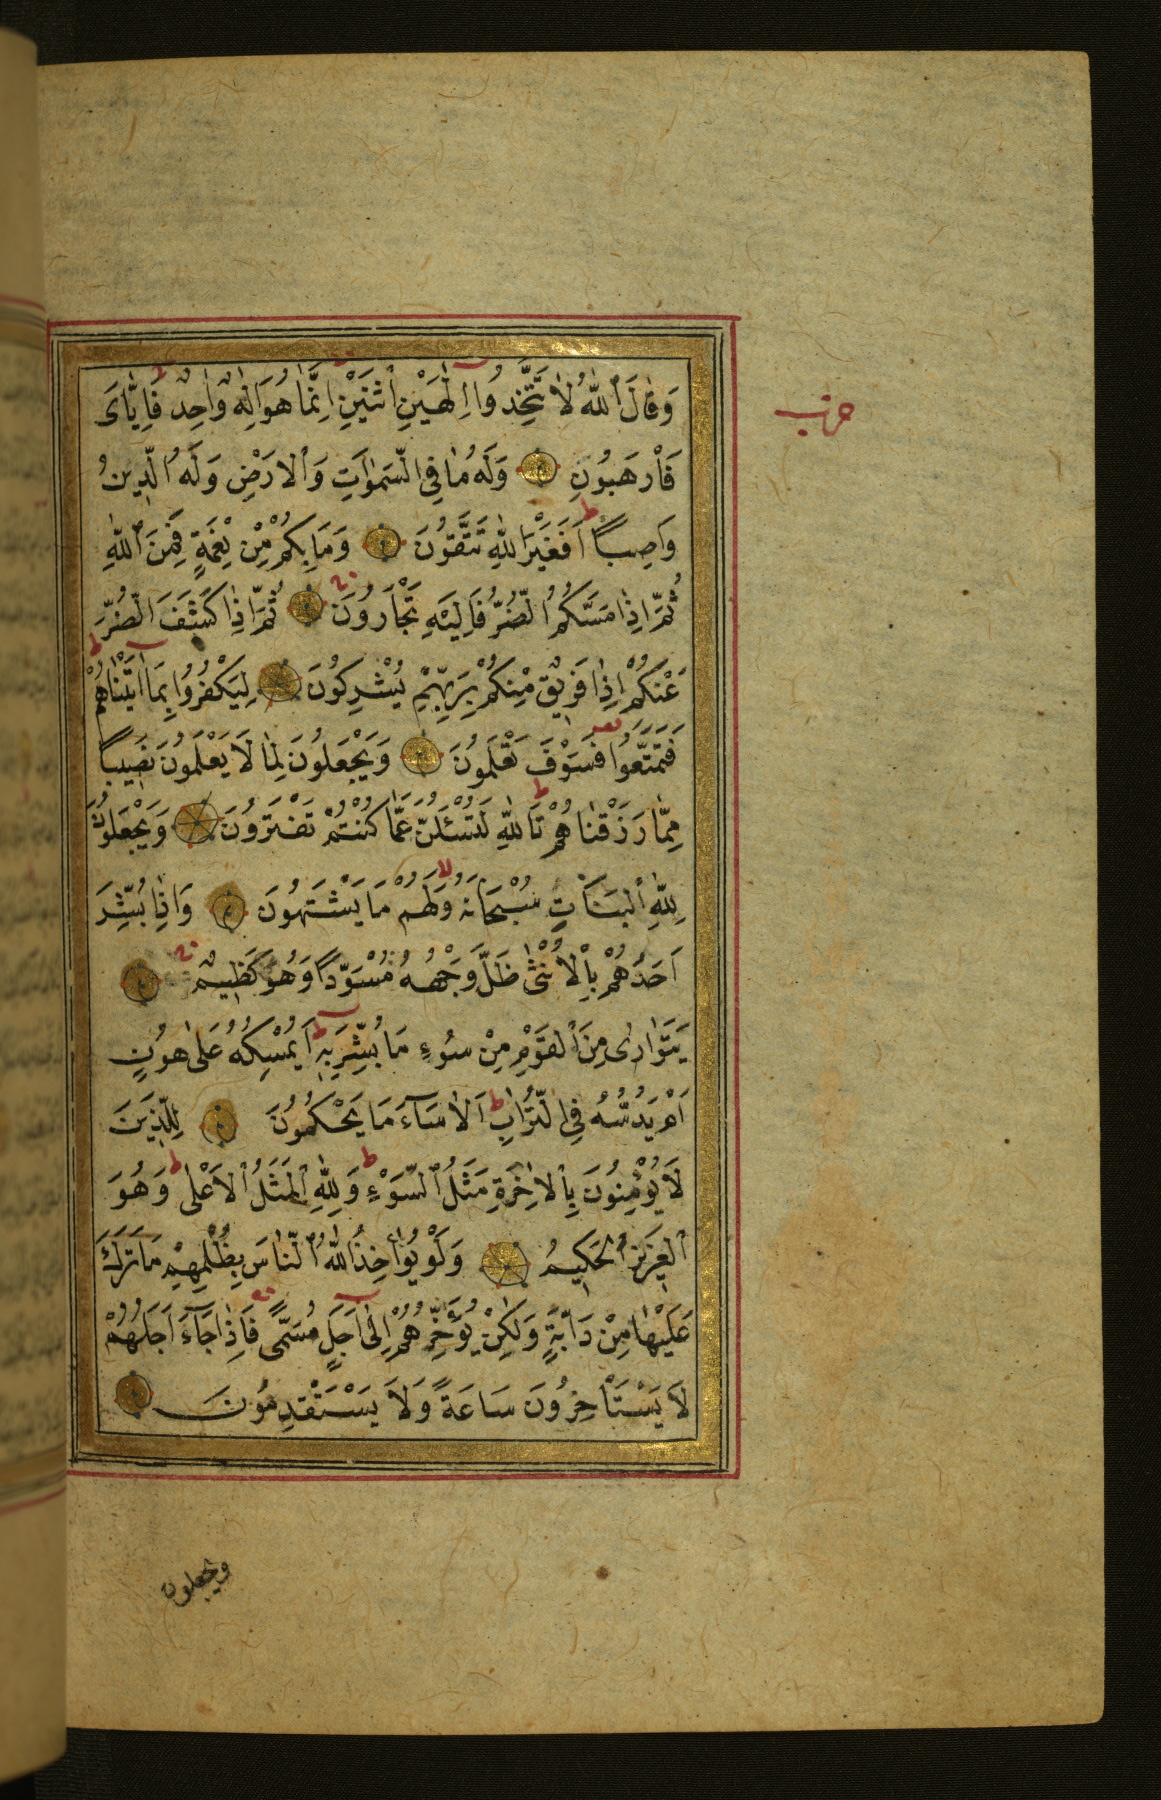 وَقَالَ ٱللّٰهُ لَا تَتَّخِذُوا اِلٰهَيْنِ ٱثْنَيْنِ اِنَّمَا هُوَ اِلٰهٌ وَاحِدٌ فَاِيَّاىَ
حزب
فَارْهَبُونِ وَلَهُ مَا فِى السَّمٰوَاتِ وَٱلْاَرْضِ وَلَهُ الدِّينُ
وَاصِبًا اَفَغَيْرَ اللّٰهِ تَتَّقُونَ وَمَا بِكُمْ مِنْ نِعْمَةٍ فَمِنَ ٱللّٰهِ
ثُمَّ اِذَا مَسَّكُمُ الضُّرُّ فَاِلَيْهِ تَجْأَرُونَ ثُمَّ اِذَا كَشَفَ الضُّرَّ
عَنْكُمْ اِذَا فَرِيقٌ مِنْكُمْ بِرَبِّهِمْ يُشْرِكُونَ لِيَكْفُرُوا بِمَا اٰتَيْنَاهُمْ
فَتَمَتَّعُوا فَسَوْفَ تَعْلَمُونَ وَيَجْعَلُونَ لِمَا لَا يَعْلَمُونَ نَصِيبًا
مِمَّا رَزَقْنَاهُمْ تَاللّٰهِ لَتُسْئَلُنَّ عَمَّا كُنْتُمْ تَفْتَرُونَ وَيَجْعَلُونَ
لِلّٰهِ ٱلْبَنَاتِ سُبْحَانَهُ وَلَهُمْ مَا يَشْتَهُونَ وَاِذَا بُشِّرَ
اَحَدُهُمْ بِاْلاُنْثٰى ظَلَّ وَجْهُهُ مُسْوَدًّا وَهُوَ كَظِيمٌ
يَتَوَارٰى مِنَ ٱلْقَوْمِ مِنْ سُوءِ مَا بُشِّرَ بِهِ اَيُمْسِكُهُ عَلٰى هُونٍ
اَمْ يَدُسُّهُ فِى التُّرَابِ اَلَا سَآءَ مَا يَحْكُمُونَ لِلَّذِينَ
لَا يُؤْمِنُونَ بِٱلْاٰخِرَةِ مَثَلُ ٱلسَّوْءِ وَلِلّٰهِ ٱلْمَثَلُ ٱلْاَعْلٰى وَهُوَ
ٱلْعَزِيزُ ٱلْحَكِيمُ وَلَوْ يُؤَاخِذُ ٱللّٰهُ ٱلنَّاسَ بِظُلْمِهِمْ مَا تَرَكَ
عَلَيْهَا مِنْ دَآبَّةٍ وَلٰكِنْ يُؤَخِّرُهُمْ اِلٰى اَجَلٍ مُسَمًّى فَاِذَا جَآءَ اَجَلُهُمْ
لَا يَسْتَأْخِرُونَ سَاعَةً وَلَا يَسْتَقْدِمُونَ
ويجعلون